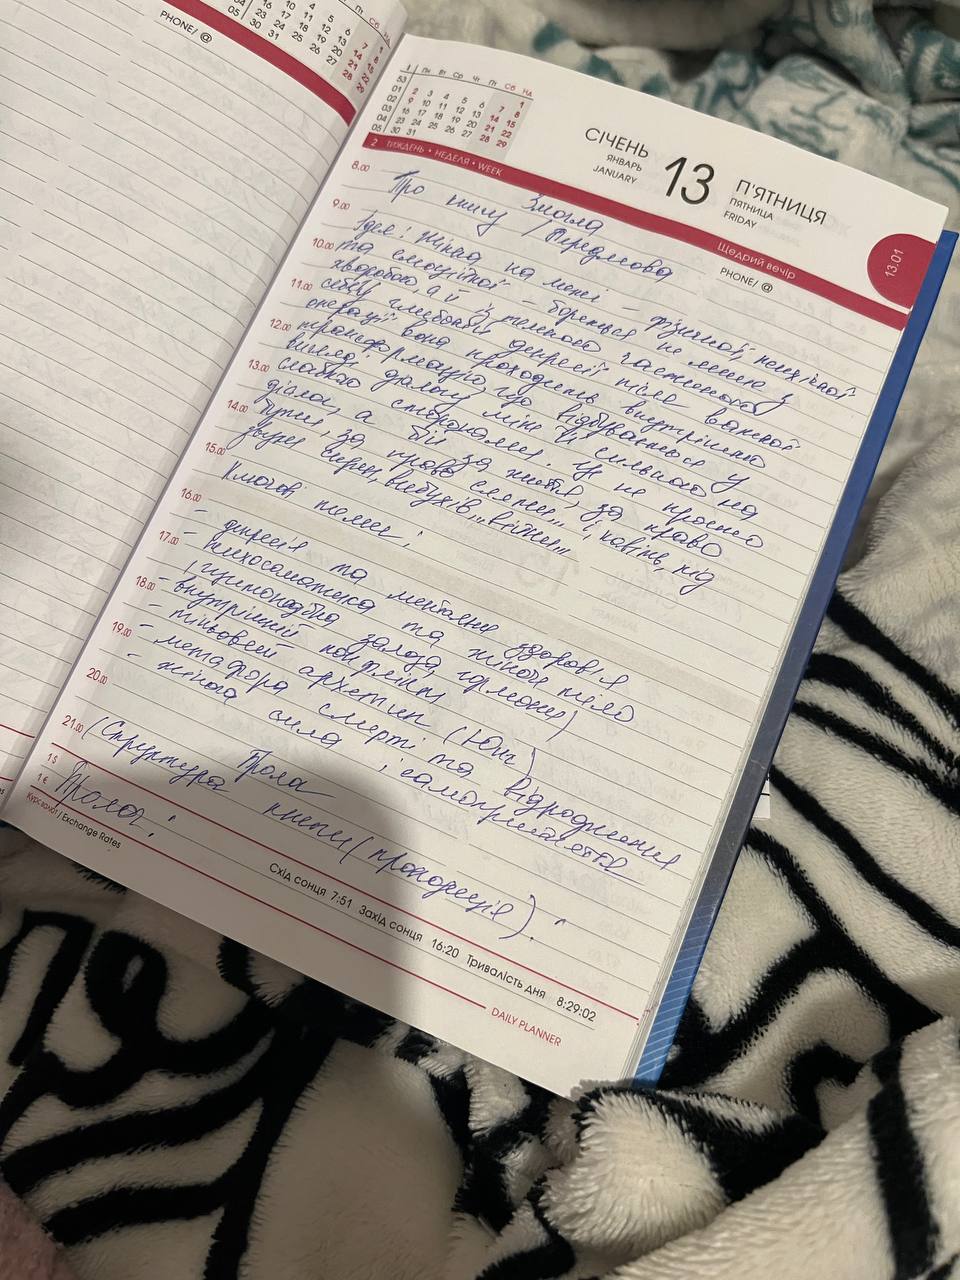 PHONE/ @
Пн Вт Ср Чт Пт Сб Нд
53 1
01 2 3 4 5 6 7 8
02 9 10 11 12 13 14 15
03 16 17 18 19 20 21 22
04 23 24 25 26 27 28 29
05 30 31
СІЧЕНЬ
ЯНВАРЬ
JANUARY
13
П'ЯТНИЦЯ
ПЯТНИЦА
FRIDAY
13.01
2 ТИЖДЕНЬ • НЕДЕЛЯ • WEEK
Щедрий вечір
PHONE/ @
8.00
Змогла
Про книгу / Передмова
9.00
Ідея: Жінка на межі – фізичної, психічної
10.00
та емоційної – бореться не лише з
хворобою, а й із темною частиною
11.00
себе, глибокої депресії після важкої
операції вона проходить внутрішню
12.00
трансформацію, що відбувається у
вигляді діалогу між її сильною та
13.00
слабкою сторонами. Це не просто
діалог, а бій за життя, за право
14.00
бути, за право
звуки сирен, вибухів, „війни"
15.00
Ключові теми:
16.00
- депресія та ментальне здоров'я
17.00
- психосоматика та жіноче тіло
(щитоподібна залоза, гормони)
18.00
- внутрішній конфлікт
- тіньовий архетип (Юнг)
19.00
- метафора смерті та відродження
- жіноча сила і самоприйняття
20.00
21.00
(Структура книги (пропозиція).
Пролог:
1 $
1 €
Курс валют / Exchange Rates
Схід сонця 7:51 Захід сонця 16:20 Тривалість дня 8:29:02
DAILY PLANNER